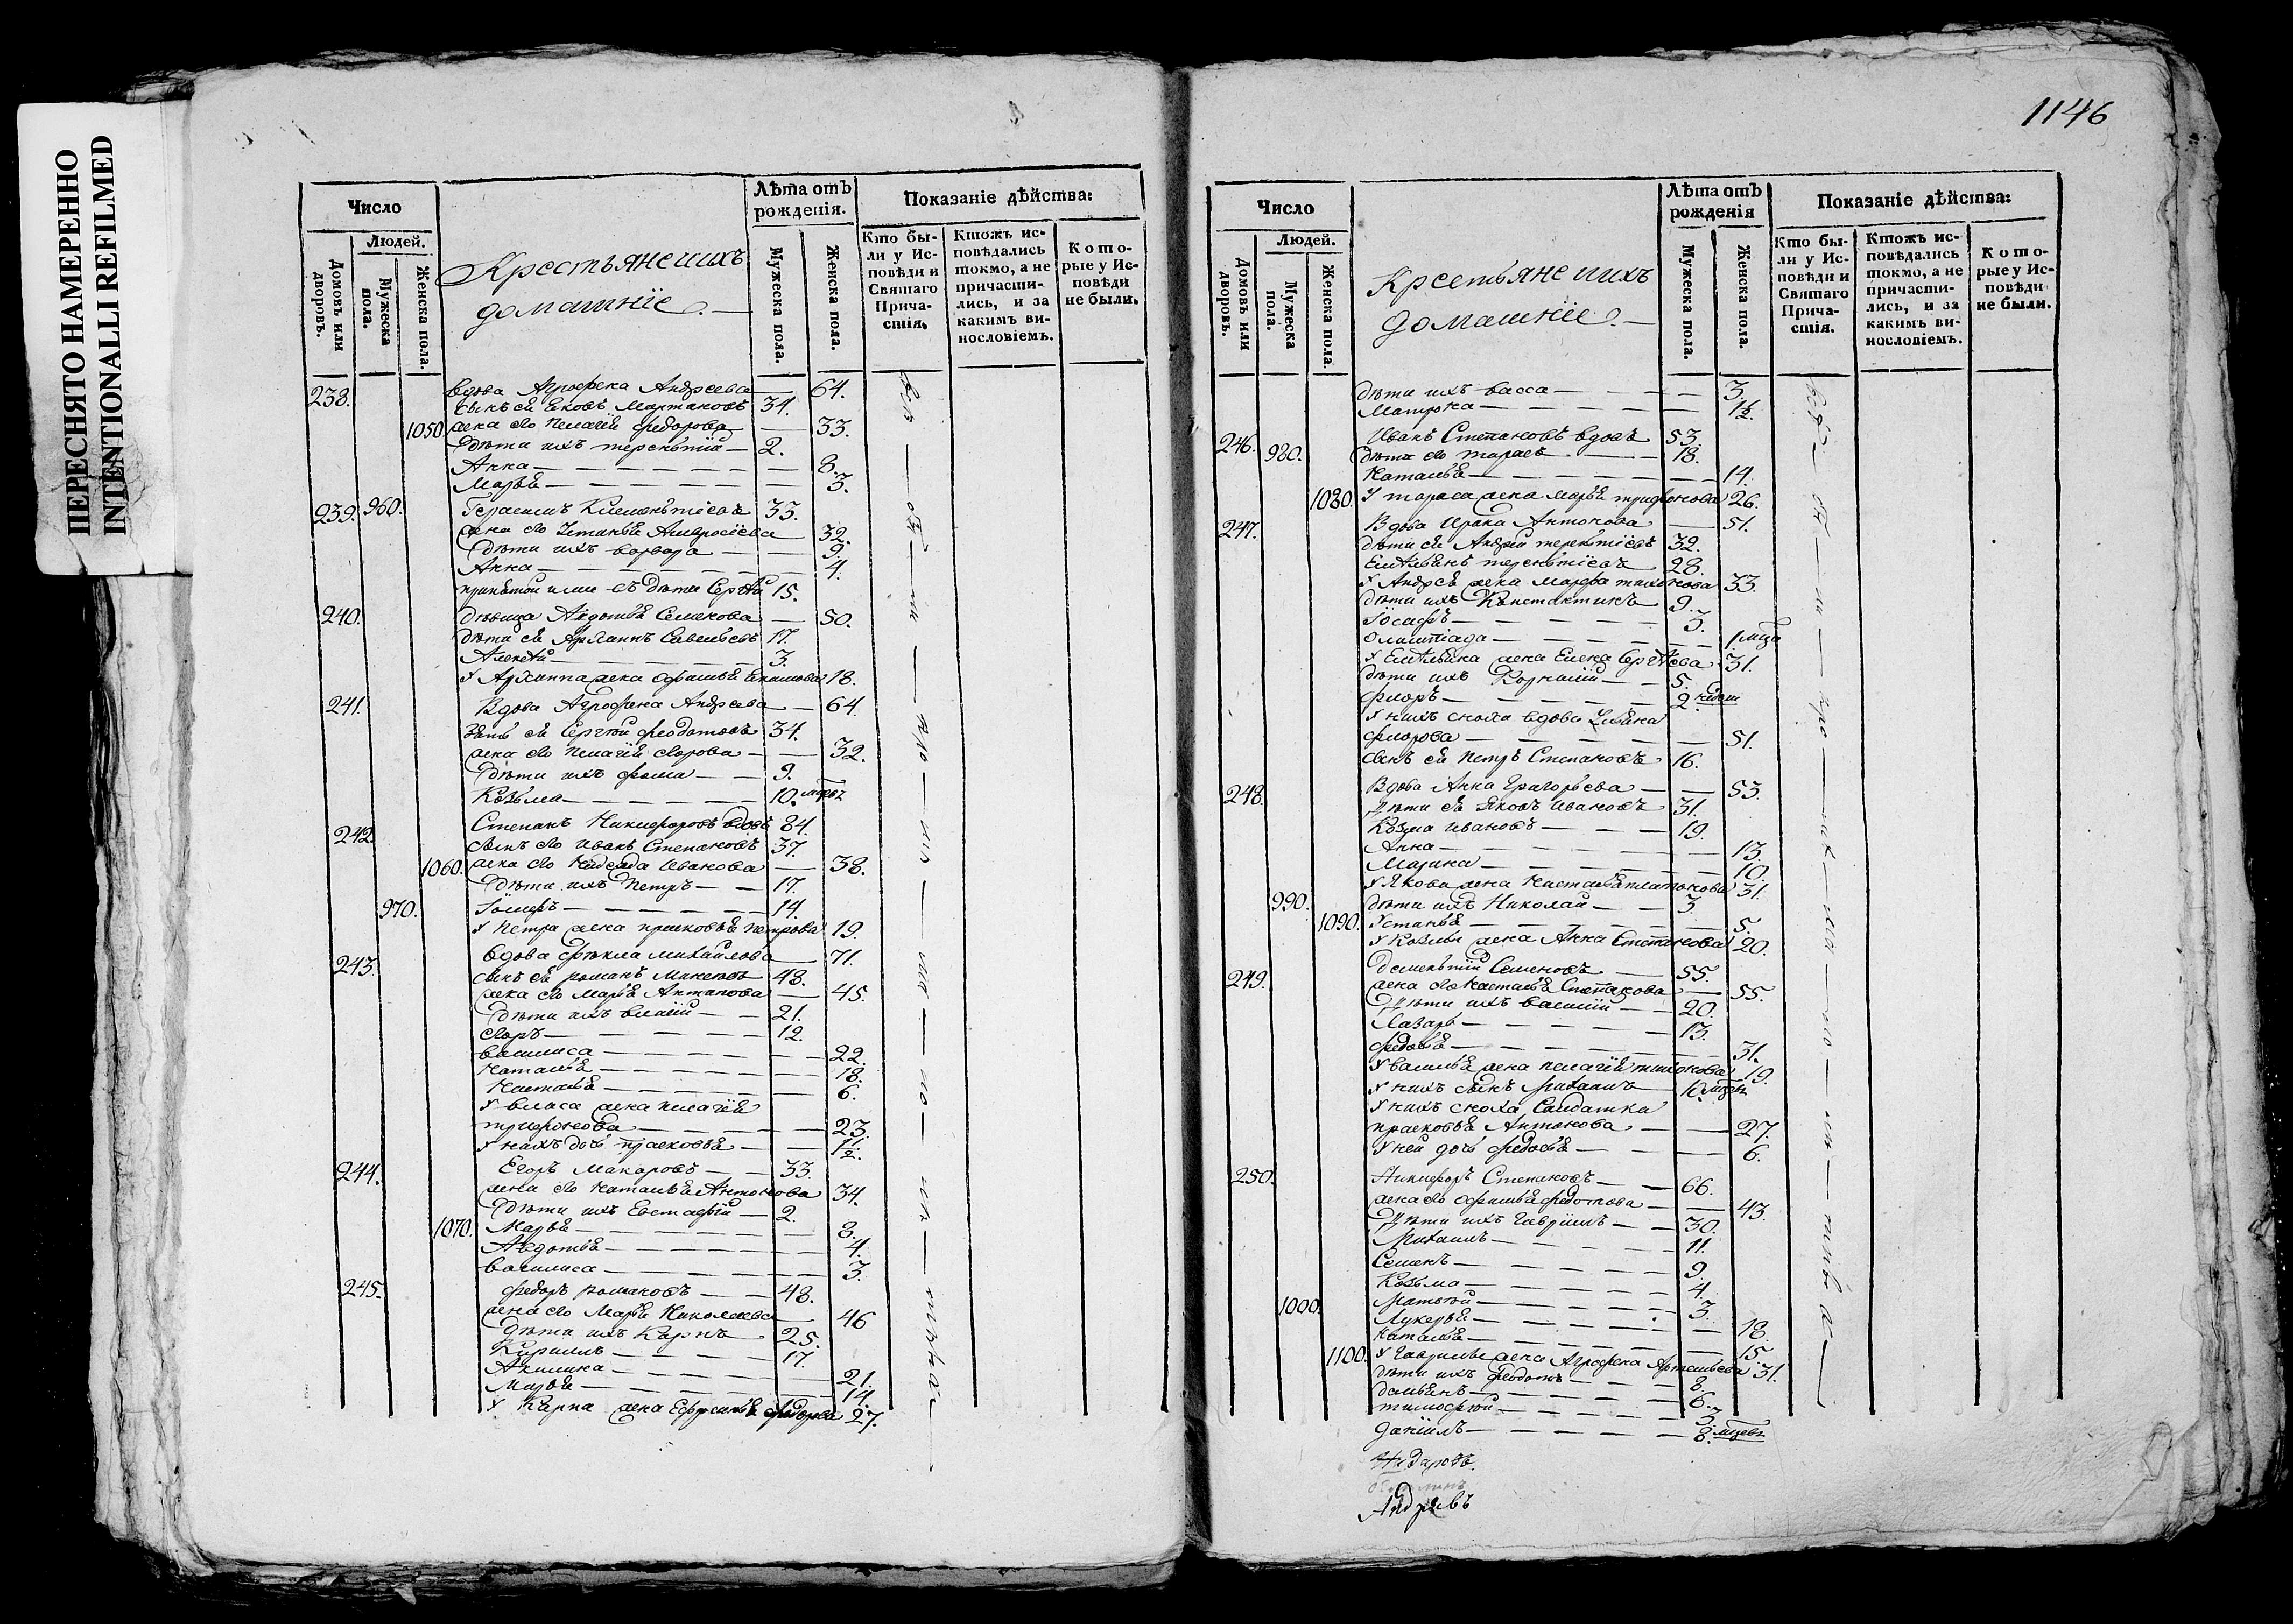 ПЕРЕСНЯТО НАМЕРЕННО
INTENTIONALLI REFILMED
1146
Число
Людей.
Домовъ или дворовъ.
Мужеска пола.
Женска пола.
Крестьяне ихъ
домашніе.
Лѣта отъ рожденія.
Мужеска пола.
Женска пола.
Показаніе дѣйства:
Кто были у Исповѣди и Святаго Причастія.
Ктожъ исповѣдались токмо, а не причастились, и за какимъ винословіемъ.
Которые у Исповѣди не были.
238. вдова Агрофена Андреева — 64.
сынъ ея Яковъ Мартиновъ 34.
1050 жена его Пелагія Федорова — 33.
дѣти ихъ терентий — 2.
Анна — 8.
Марья — 3.
239. 960. Герасимъ Климентіевъ 33.
жена его Устинья Амвросіева 32.
дѣти ихъ варвара — 9.
Анна — 4.
принятой ими въ дѣти Сергѣй 15.
240. дѣвица Авдотья Семенова — 50.
дѣти ея Архиппъ Савельевъ 17.
Алексѣй — 3.
у Архиппа жена Офимья Екимова 18.
241. Вдова Агрофена Андреева — 64.
Зять ея Сергѣй Федотовъ 34.
жена его Пелагия — 32.
дѣти ихъ фома — 9.
Козьма — 10.
242. Степанъ Никифоровъ вдовъ 84.
сынъ его Иванъ Степановъ 37.
1060. жена его Иванова — 38.
дѣти ихъ Петръ — 17.
970. — 14.
у Петра жена прасковья петрова 19.
243. вдова фекла михайлова — 71.
сынъ ея романъ 48.
жена его Марья Антипова — 45.
дѣти ихъ власий — 21.
— 12.
василиса — 22.
Наталья — 18.
Настасья — 6.
у власа жена пелагия
трифонова — 23.
у нихъ дочь прасковья — 1½.
244. Егоръ Макаровъ — 33.
жена его Наталья Антонова 34.
дѣти ихъ Евстафій — 2.
1070. Марья — 8.
Авдотья — 4.
василиса — 3.
245. федоръ романовъ — 48.
жена его Марья Николаева — 46
дѣти ихъ Карпъ — 25.
Кирилъ — 17.
Акилина — 21.
Марья — 14.
у Карпа жена Ефросинья федорова 27.
Число
Людей.
Домовъ или дворовъ.
Мужеска пола.
Женска пола.
Крестьяне ихъ
домашніе.
Лѣта отъ рожденія
Мужеска пола.
Женска пола.
Показаніе дѣйства:
Кто были у Исповѣди и Святаго Причастія.
Ктожъ исповѣдались токмо, а не причастились, и за какимъ винословіемъ.
Которые у Исповѣди не были.
дѣти ихъ васса — 3.
Матрона — 1½.
246. Иванъ Степановъ вдовъ 53.
980. дѣти его тарасъ — 18.
Наталья — 14.
1080. У тараса жена марья трифонова 26.
247. Вдова Ирина Антонова — 51.
дѣти ея Андрей терентіевъ 32.
Емѣльянъ терентіевъ 28.
у Андрея жена марфа тихонова 33.
дѣти ихъ Константинъ 9.
Іосифъ — 3.
олимпіада — 1
у Емѣльяна жена Елена Сергѣева 31.
дѣти ихъ Корнилій — 5.
флоръ — 2.
у нихъ сноха вдова Ульяна
флорова — 51.
сынъ ея Петръ Степановъ 16.
248. Вдова Анна Григорьева — 53.
дѣти ея Яковъ Ивановъ 31.
Козма Ивановъ — 19.
Анна — 13.
Марина — 10.
у Якова жена Настасья платонова 31.
990. дѣти ихъ Николай — 3.
1090. Устинья — 5.
у Козмы жена Анна Степанова 20.
249. Семеновъ — 55.
жена его Настасья Степанова — 55.
дѣти ихъ василий — 20.
Лазарь — 13.
федосья — 31.
у василья жена пелагия тихонова 19.
у нихъ сынъ михаилъ 10
у нихъ сноха Салдатка
прасковья Антонова — 27.
у ней дочь федосья — 6.
250. Никифоръ Степановъ — 66.
жена его офимья федотова — 43.
дѣти ихъ Гавріилъ — 30.
михаилъ — 11.
Семенъ — 9.
Козьма — 4.
1000. матвей — 3.
Лукерья — 18.
наталья — 15.
1100. у Гаврилы жена Агрофена Артемьева 31.
дѣти ихъ Федотъ — 8.
демьянъ — 6.
тимофей — 3.
даніилъ — 8.
Андреевъ